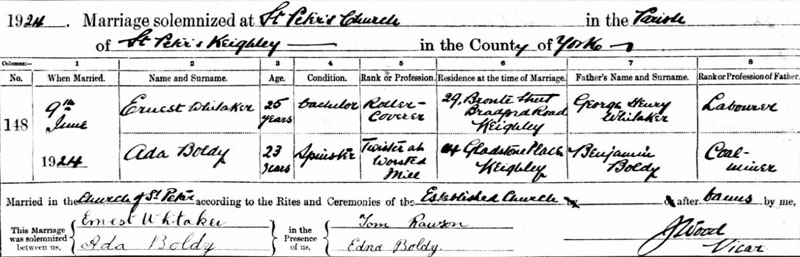 1924. Marriage solemnized at St Peter's Church in the Parish
of St Peter's Keighley in the County of York
Columns:— 1 2 3 4 5 6 7 8
No. When Married. Name and Surname. Age. Condition. Rank or Profession. Residence at the time of Marriage. Father's Name and Surname. Rank or Profession of Father.
148 9th June 1924
Ernest Whitaker 25 years Bachelor Roller-Coverer 29, Bronte Street Bradford Road Keighley George Henry Whitaker Labourer
Ada Boldy 23 years Spinster Twister at Worsted Mill Gladstone Place Keighley Benjamin Boldy Coal-miner
Married in the Church of St Peter according to the Rites and Ceremonies of the Established Church after banns by me,
This Marriage was solemnized between us,
Ernest Whitaker
Ada Boldy
in the Presence of us,
Tom Rawson
Edna Boldy
J Wood
Vicar